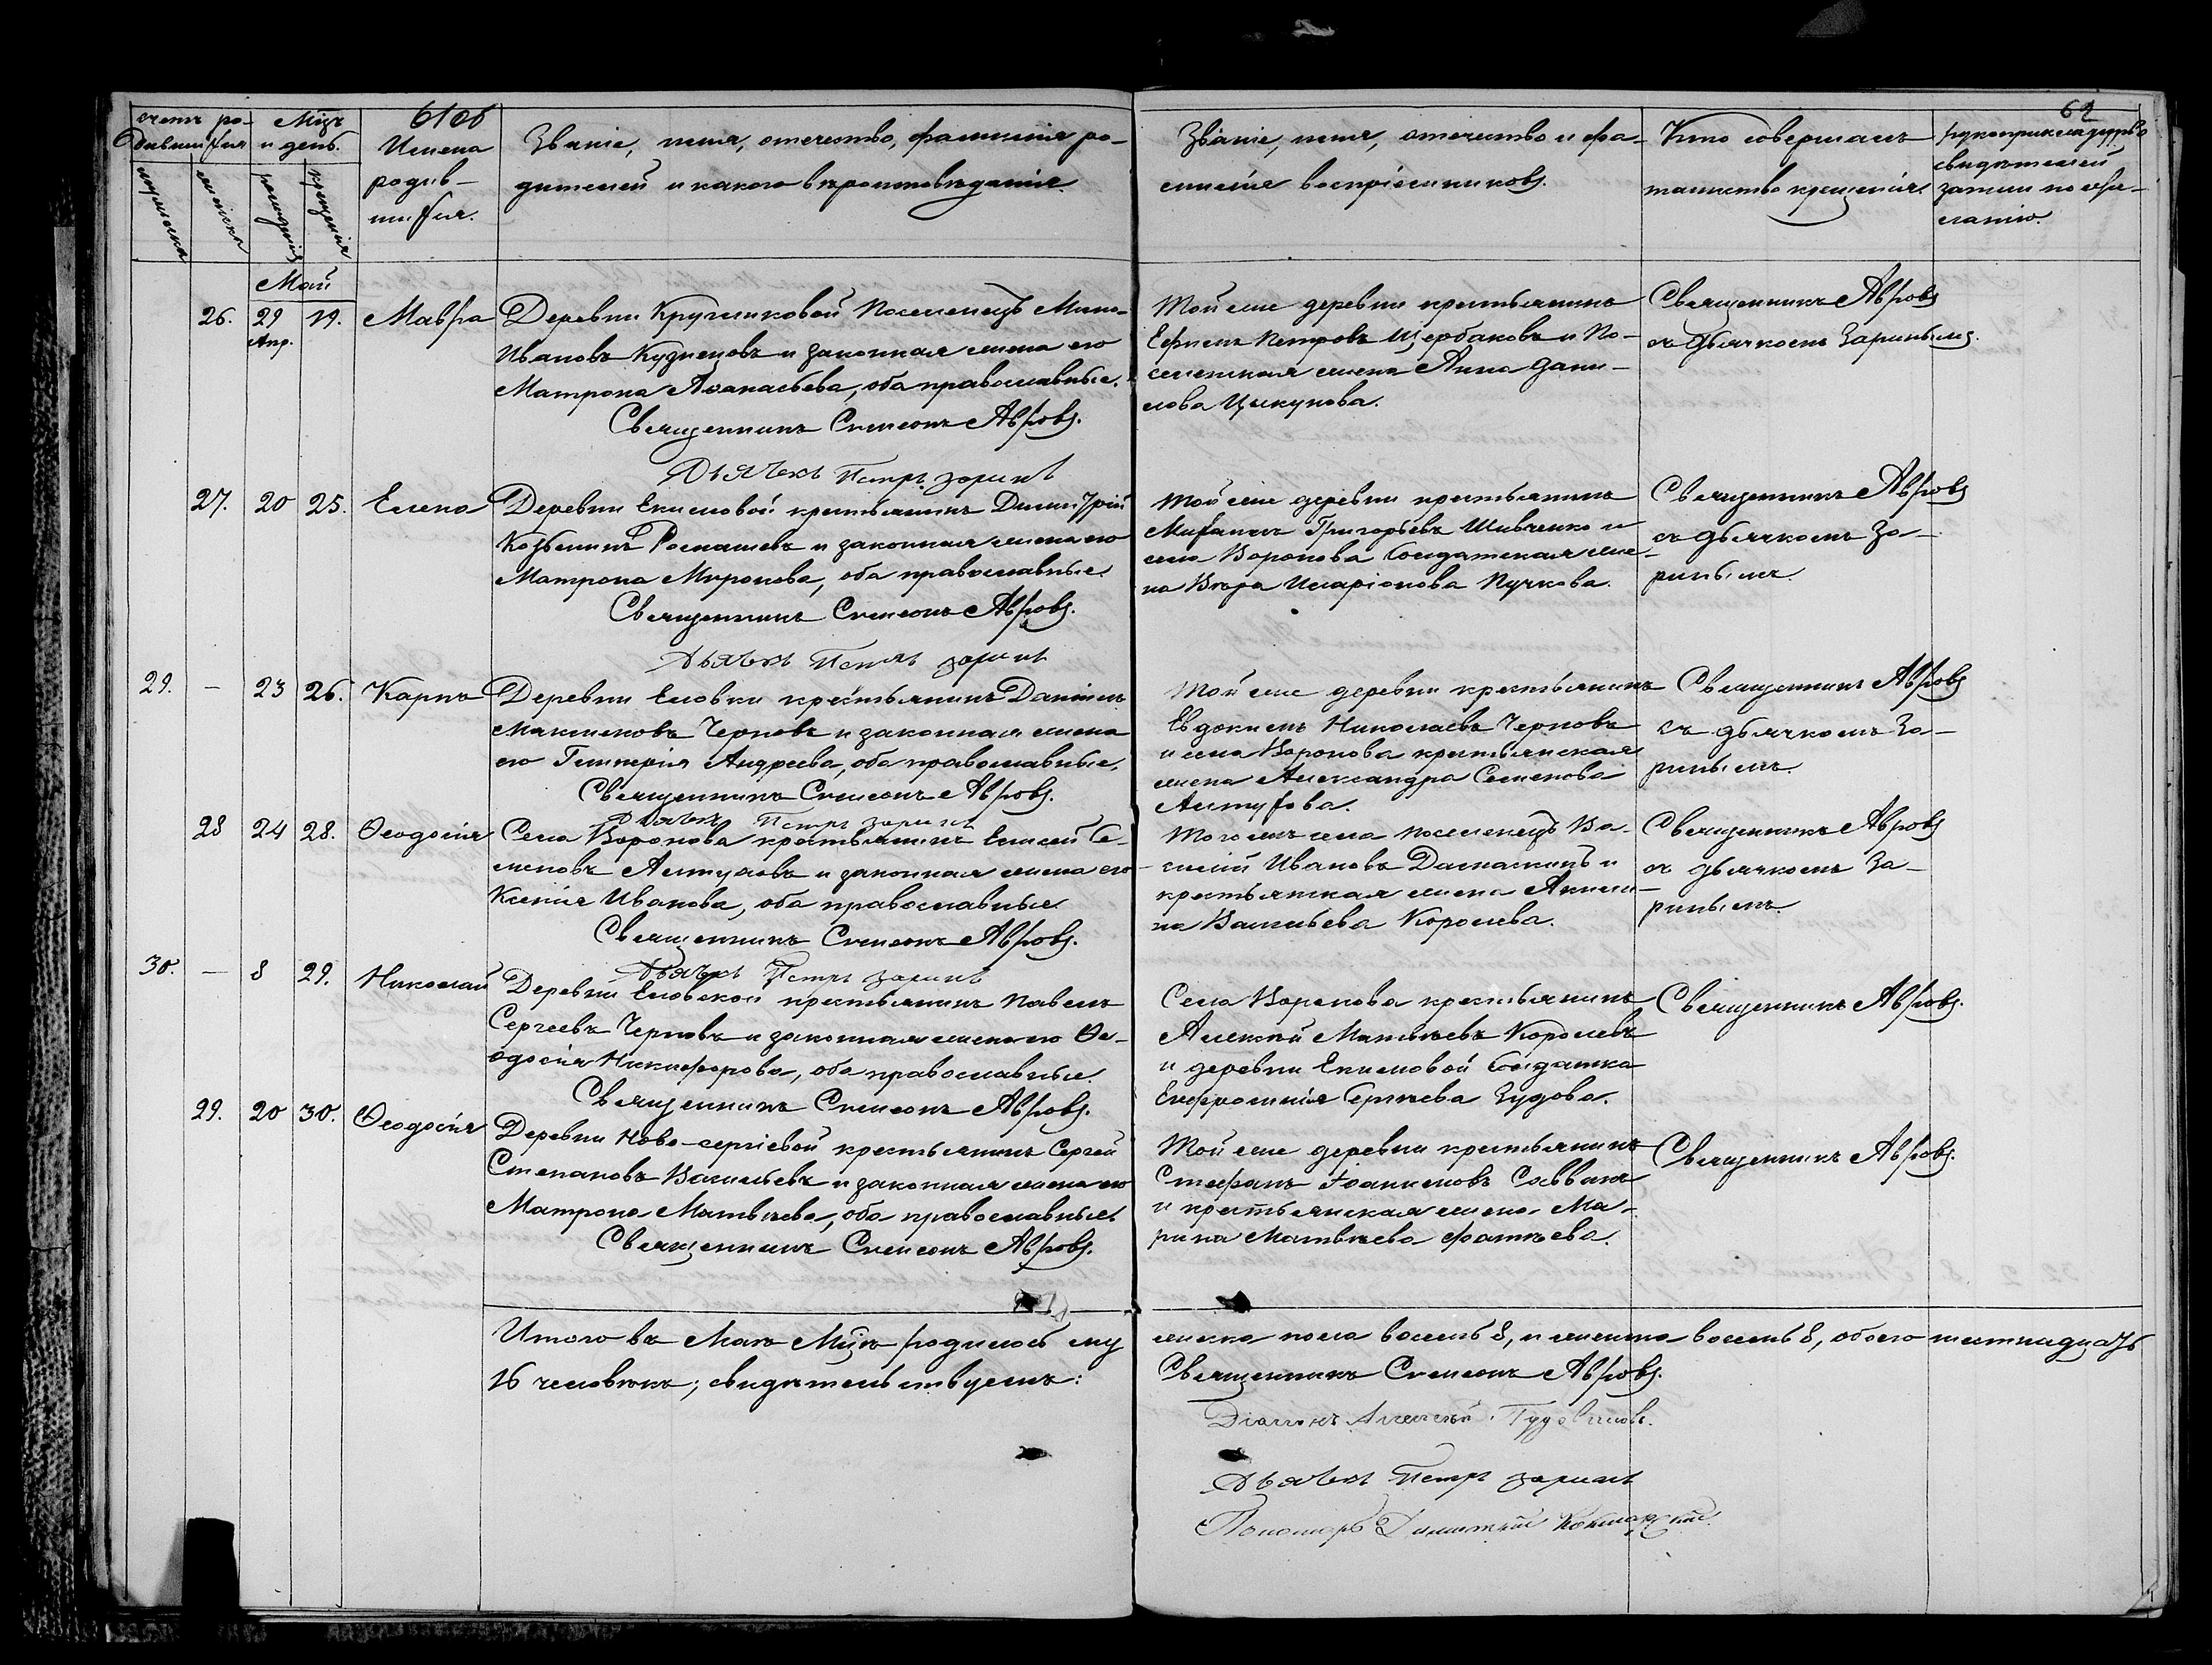 61об
62
Счетъ ро-
дившихся
Мцъ
и день.
Имена
родив-
шихся.
Званіе, имя, отечество, фамилія ро-
дителей и какого вѣроисповѣданія.
Званіе, имя, отечество и фа-
милія воспріемниковъ.
Кто совершалъ
таинство крещенія.
рукоприкладство
свидѣтелей
записи по же-
ланію.
мужеска
женска
рожденія
крещенія
Май
26.
29
Апр.
19.
Мавра
Деревни Кругликовой Поселенецъ
Ивановъ Кузнецовъ и законная жена его
Матрона Аѳанасьева, оба православные.
Священникъ Симеонъ Авровъ.
Дьячекъ Петръ Заринъ
Той же деревни крестьянинъ
Ефимъ Петровъ Щербаковъ и По-
селенская жена Анна Дани-
лова Цыкунова.
Священникъ Авровъ
съ дьячкомъ Заринымъ.
27.
20
25.
Елена
Деревни Екимовой крестьянинъ Димитрій
Козьминъ Ромашевъ и законная жена его
Матрона Миронова, оба православные.
Священникъ Симеонъ Авровъ.
Дьячекъ Петръ Заринъ
Той же деревни крестьянинъ
Михаилъ Григорьевъ Шивченко и
села Воронова Солдатская же-
на Вѣра Иларіонова Пучкова.
Священникъ Авровъ
съ дьячкомъ За-
ринымъ.
29.
—
23
26.
Карпъ
Деревни Еловки крестьянинъ Даніилъ
Максимовъ Черновъ и законная жена
его Гликерія Андреева, оба православные.
Священникъ Симеонъ Авровъ.
Дьячекъ Петръ Заринъ
Той же деревни крестьянинъ
Евдокимъ Николаевъ Черновъ
и села Воронова крестьянская
жена Александра Семенова
Алтухова.
Священникъ Авровъ
съ дьячкомъ За-
ринымъ.
28
24
28.
Ѳеодосія
Села Воронова крестьянинъ Елисей Се-
меновъ Алтуховъ и законная жена его
Ксенія Иванова, оба православные
Священникъ Симеонъ Авровъ.
Дьячекъ Петръ Заринъ
Того же села поселенецъ Ва-
силій Ивановъ и
крестьянская жена Акили-
на Васильева Королева.
Священникъ Авровъ
съ дьячкомъ За-
ринымъ.
30.
—
8
29.
Николай
Деревни Еловской крестьянинъ Павелъ
Сергеевъ Черновъ и законная жена его Ѳе-
одосія Никифорова, оба православные.
Священникъ Симеонъ Авровъ.
Села Воронова крестьянинъ
Алексѣй Матвѣевъ Королевъ
и деревни Екимовой Солдатка
Ефросинія Сергѣева Зудова.
Священникъ Авровъ.
29.
20
30.
Ѳеодосія
Деревни Ново-сергіевой крестьянинъ Сергей
Степановъ Васильевъ и законная жена его
Матрона Матвѣева, оба православные
Священникъ Симеонъ Авровъ.
Той же деревни крестьянинъ
Стефанъ Іоакимовъ
и крестьянская жена Ма-
рина Матвѣева Фатѣева.
Священникъ Авровъ.
Итого въ Маѣ Мцѣ родилось му
жеска пола восемь 8, и женска восемь 8, обоего шестнадцать
16 человѣкъ; свидѣтельствуемъ:
Священникъ Симеонъ Авровъ.
Діаконъ Алексѣй
Дьячекъ Петръ Заринъ
Пономарь Димитрій